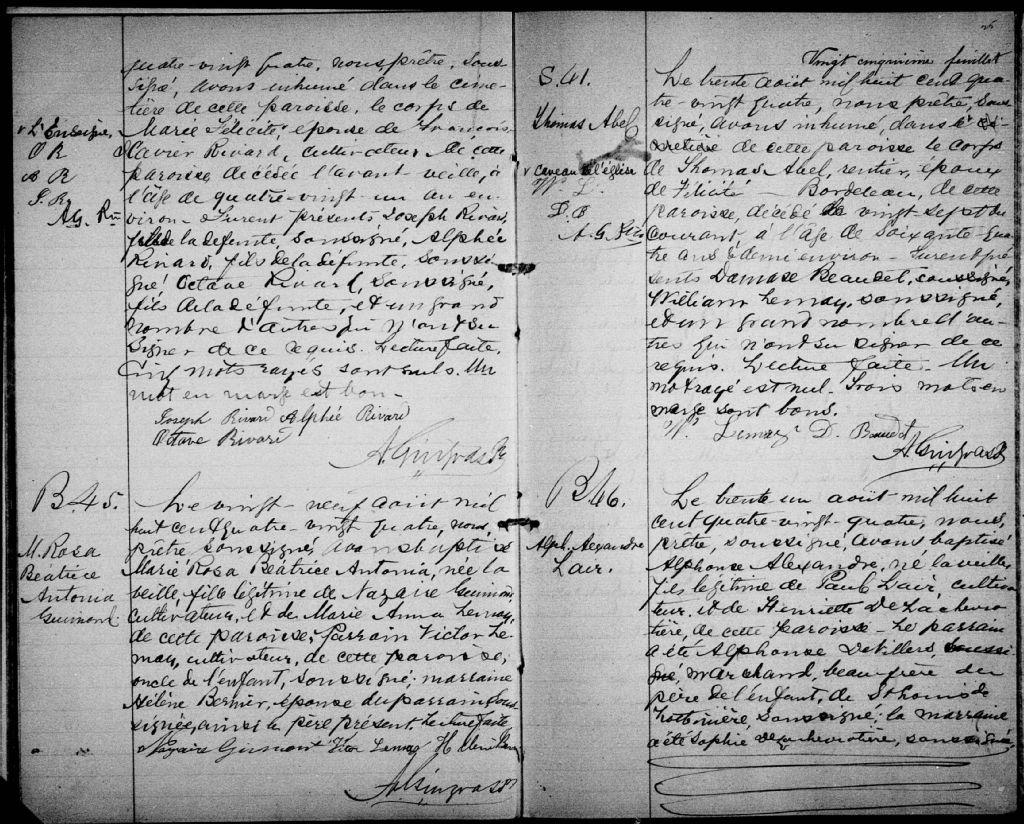 quatre-vingt quatre, nous prêtre, sous
signé, avons inhumé dans le cime-
tière de cette paroisse, le corps de
L'Enseigne,
Marie Félicité, épouse de François
O R
Xavier Rivard, cultivateur de cette
B R
paroisse, décédée l'avant-veille, à
J. R.
l'âge de quatre-vingt un an en-
A. G. Ptre
viron - Furent présents Joseph Rivard,
fils de la défunte, soussigné, Alphée
Rivard, fils de la défunte, soussi-
gné Octave Rivard, soussigné,
fils de la défunte, et un grand
nombre d'autres qui n'ont su
signer de ce requis. Lecture faite.
Cinq mots rayés sont nuls. Un
mot en marge est bon -
Joseph Rivard Alphée Rivard
Octave Rivard
A Gingras Ptre
B. 45.
M. Rosa
Béatrice
Antonia
Guimond
Le vingt-neuf août mil
huit cent quatre-vingt quatre, nous,
prêtre soussigné, avons baptisé
Marie Rosa Béatrice Antonia, née la
veille, fille légitime de Nazaire Guimond,
cultivateur, et de Marie Anna Lemay,
de cette paroisse; Parrain Victor Le-
may, cultivateur, de cette paroisse,
oncle de l'enfant, soussigné; marraine
Hélène Bernier, épouse du parrain sous
signée, ainsi le père présent. Lecture faite
Nazaire Guimont Victor Lemay H
A Gingras Ptre
26
Vingt cinquième feuillet
S. 41.
Thomas Abel
caveau de l'église
W. L.
D. B
A. G. Ptre
Le trente août mil huit cent qua-
tre-vingt quatre, nous prêtre, sous
signé, avons inhumé, dans le ci-
metière de cette paroisse le corps
de Thomas Abel, rentier, époux
de Félicité - Bordeleau, de cette
paroisse, décédé le vingt-sept du
courant, à l'âge de soixante-quatre
ans & demi environ - Furent pré-
sents Damase Beaudet, soussigné,
William Lemay, soussigné,
et un grand nombre d'au-
tres qui n'ont su signer de ce
requis. Lecture faite. Un
mot rayé est nul. Trois mots en
marge sont bons.
W. Lemay D. Beaudet
A Gingras Ptre
B. 46.
Alph. Alexandre
Lair.
Le trente un août mil huit
cent quatre-vingt-quatre, nous,
prêtre, soussigné, avons baptisé
Alphonse Alexandre, né la veille,
fils légitime de Paul Lair, cultiva-
teur, et de Henriette De Lachevro-
tière, de cette paroisse - Le parrain
a été Alphonse Détillers, soussi-
gné, marchand, beau-frère du
père de l'enfant, de St homs de
Lotbinière, soussigné; la marraine
a été Sophie Delachevrotière, soussignée,